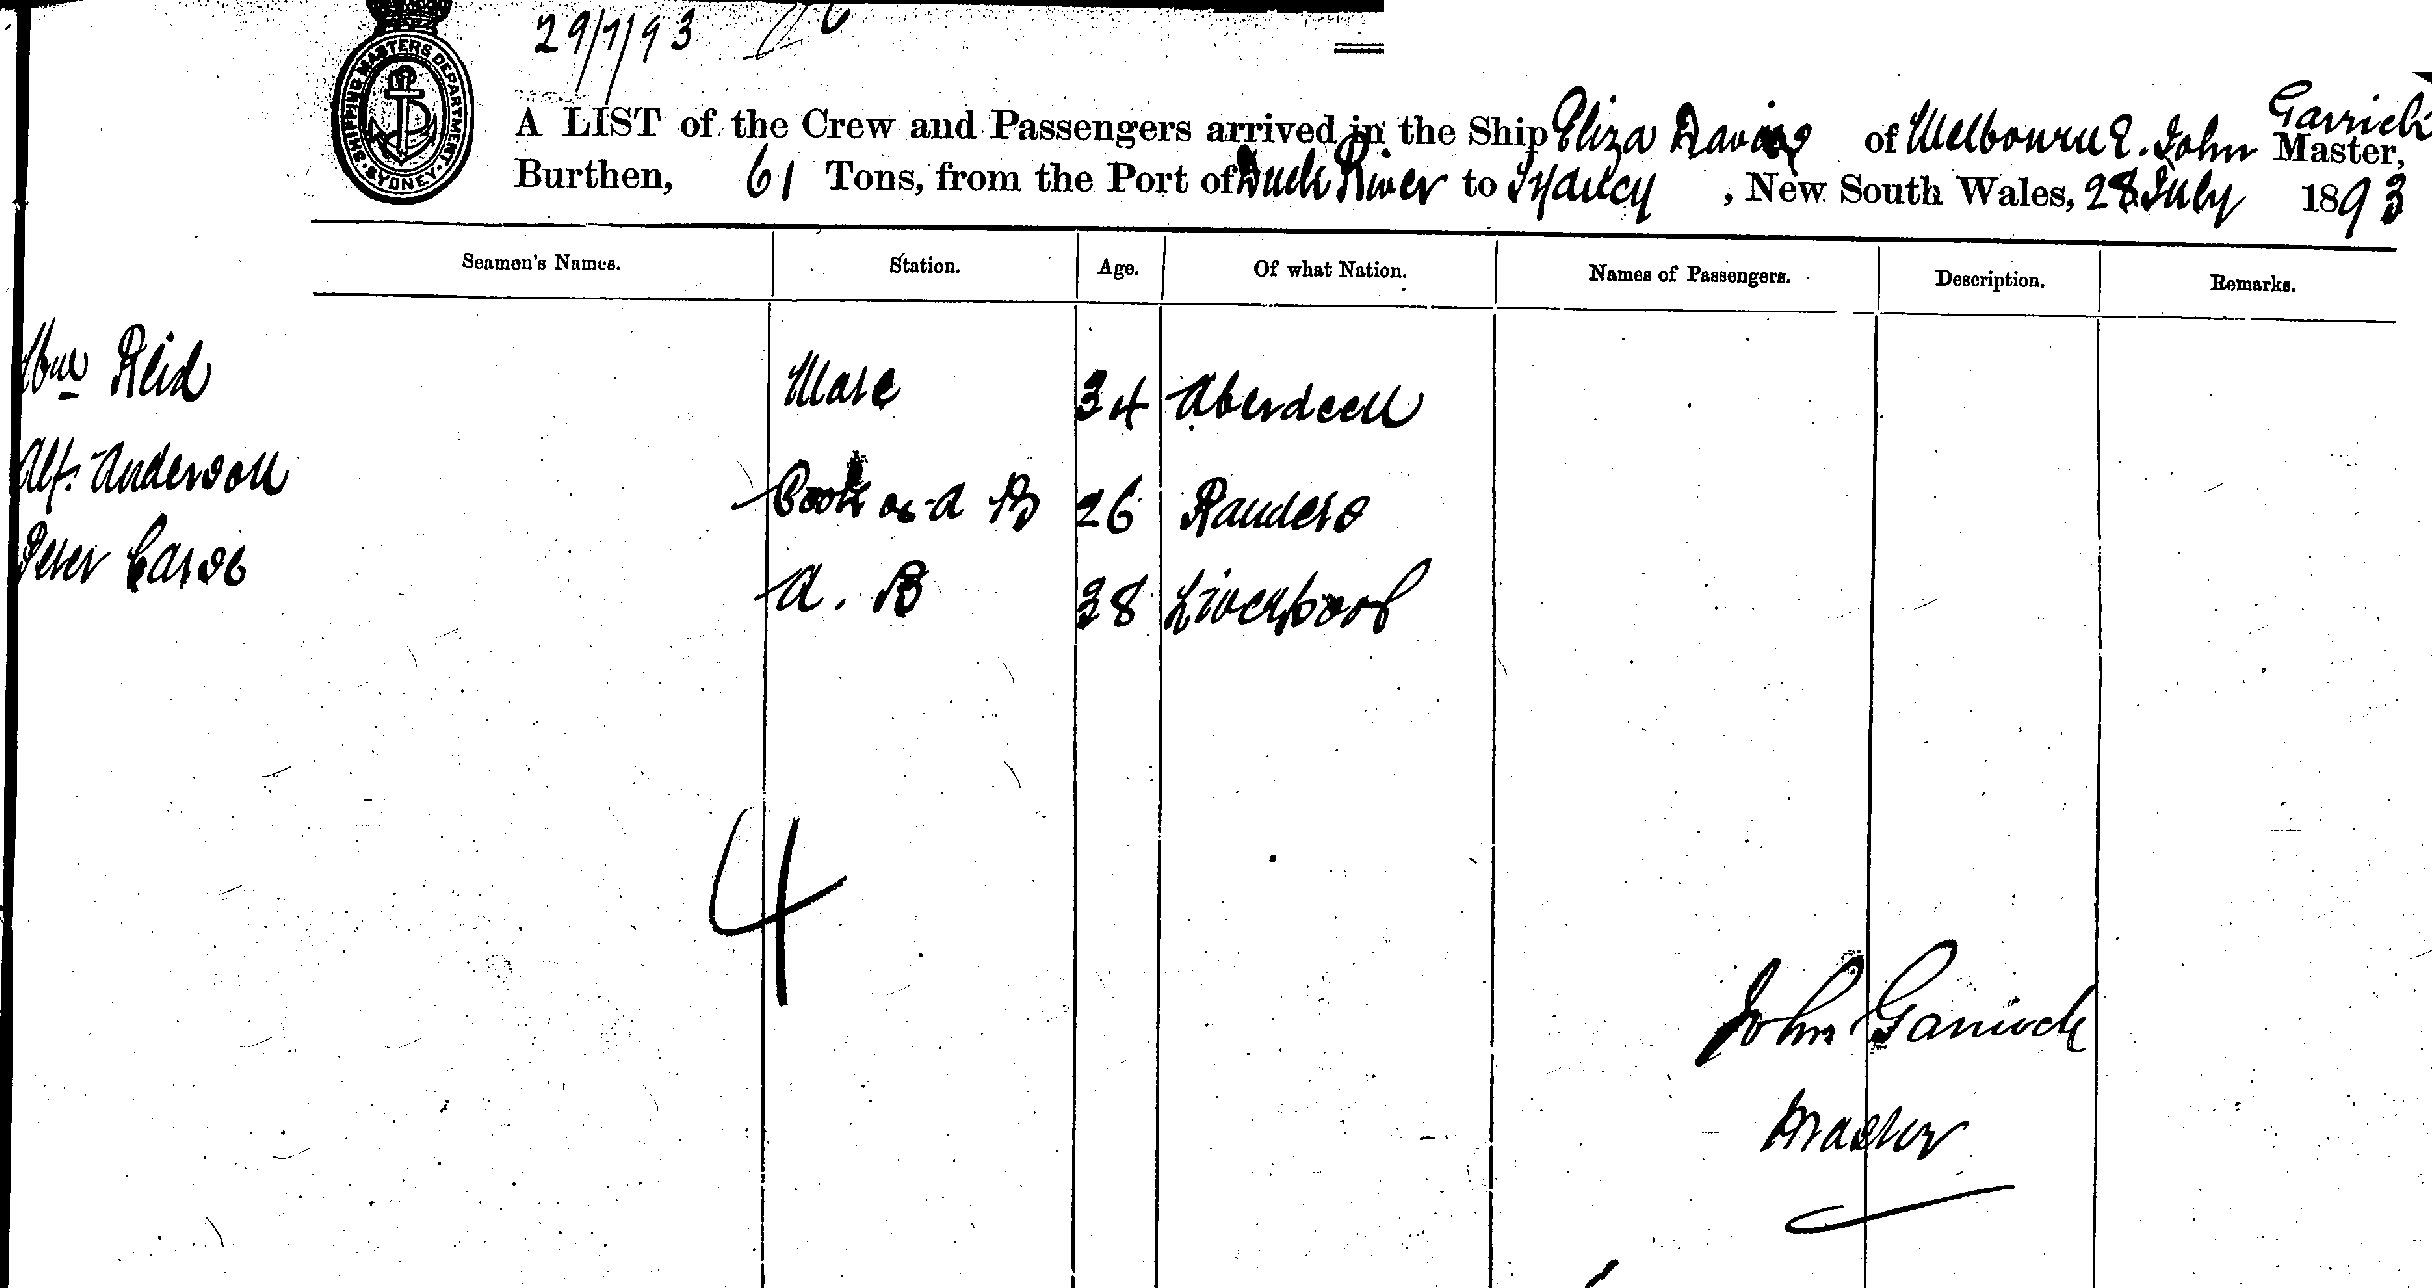 29/7/93
SHIPPING MASTERS DEPARTMENT SYDNEY
Garrick
A LIST of the Crew and Passengers arrived in the Ship Eliza Davies of Melbourne. John Master,
Burthen, 61 Tons, from the Port of Duck River to Sydney, New South Wales, 28 July 1893
Seamen's Names. Station. Age. Of what Nation. Names of Passengers. Description. Remarks.
Wm Reid Mate 34 Aberdeen
Alf. Anderson Cook as A B 26 Randers
Peter A. B 38 Liverpool
4
John Garrick
Master